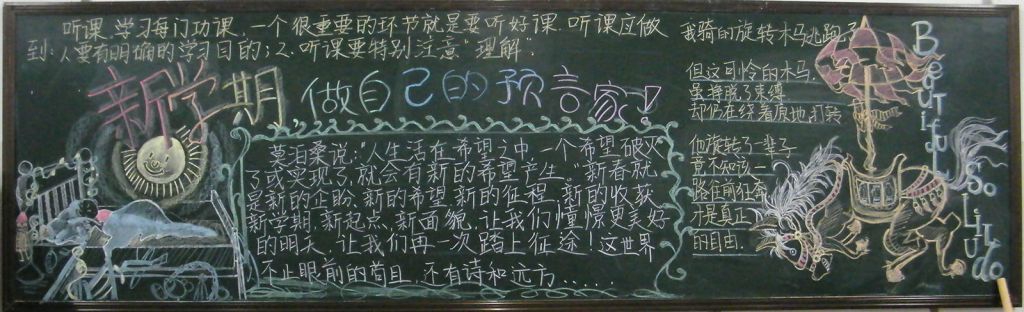 听课 学习每门功课,一个很重要的环节就是要听好课,听课应做
到:1、要有明确的学习目的;2、听课要特别注意“理解”。
新学期 做自己的预言家!
莫泊桑说:“人生活在希望之中,一个希望破灭
了或实现了,就会有新的希望产生。”新春就
是新的企盼、新的希望、新的征程、新的收获
新学期、新起点、新面貌,让我们憧憬更美好
的明天,让我们再一次踏上征途!这世界
不止眼前的苟且,还有诗和远方......
我骑的旋转木马逃跑了
但这可怜的木马,
虽挣脱了束缚
却仍在绕着原地打转
他旋转了一辈子
竟不知道
路径前狂奔
才是真正
的自由.
BeauTifuL
SoLiTudo